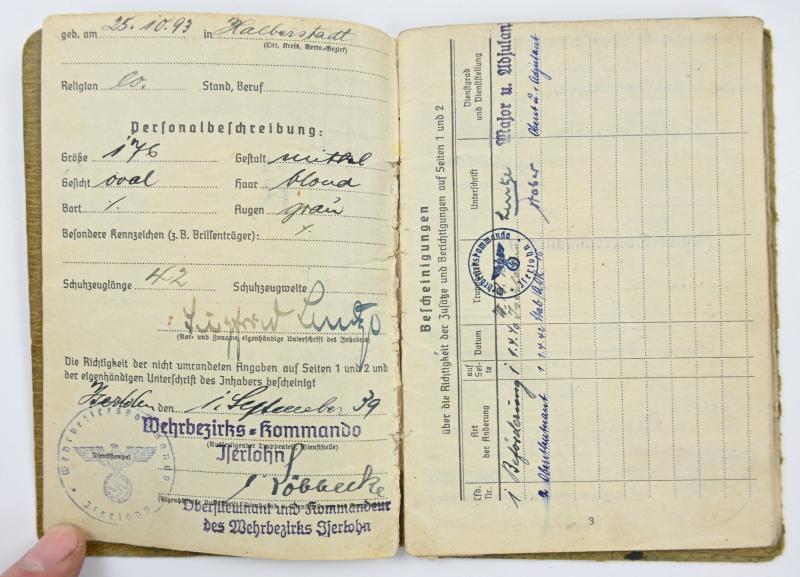 geb. am 25.10.93 in Halberstadt
(Ort, Kreis, Verw.-Bezirk)
Religion ev. Stand, Beruf
Personalbeschreibung:
Größe 176 Gestalt mittel
Gesicht oval Haar blond
Bart ./. Augen grau
Besondere Kennzeichen (z. B. Brillenträger): ./.
Schuhzeuglänge 42 Schuhzeugweite
Siegfried
(Vor- und Zuname, eigenhändige Unterschrift des Inhabers)
Die Richtigkeit der nicht umrandeten Angaben auf Seiten 1 und 2 und
der eigenhändigen Unterschrift des Inhabers bescheinigt
Iserlohn den 1. September 39
Wehrbezirks-Kommando
(Ausfertigender Truppenteil, Dienststelle)
Iserlohn
Wehrbezirkskommando
Dienststempel
Iserlohn
Röbbecke
Oberstleutnant und Kommandeur
des Wehrbezirks Iserlohn
Bescheinigungen
über die Richtigkeit der Zusätze und Berichtigungen auf Seiten 1 und 2
Lfd. Nr.
Art der Änderung
auf Seite
Datum
Unterschrift
Dienstgrad und Dienststellung
1 Beförderung 1 1.4.40
Major u. Adjutant
2. Oberstleutnant 1 1.4.42
Wehrbezirkskommando
Iserlohn
3